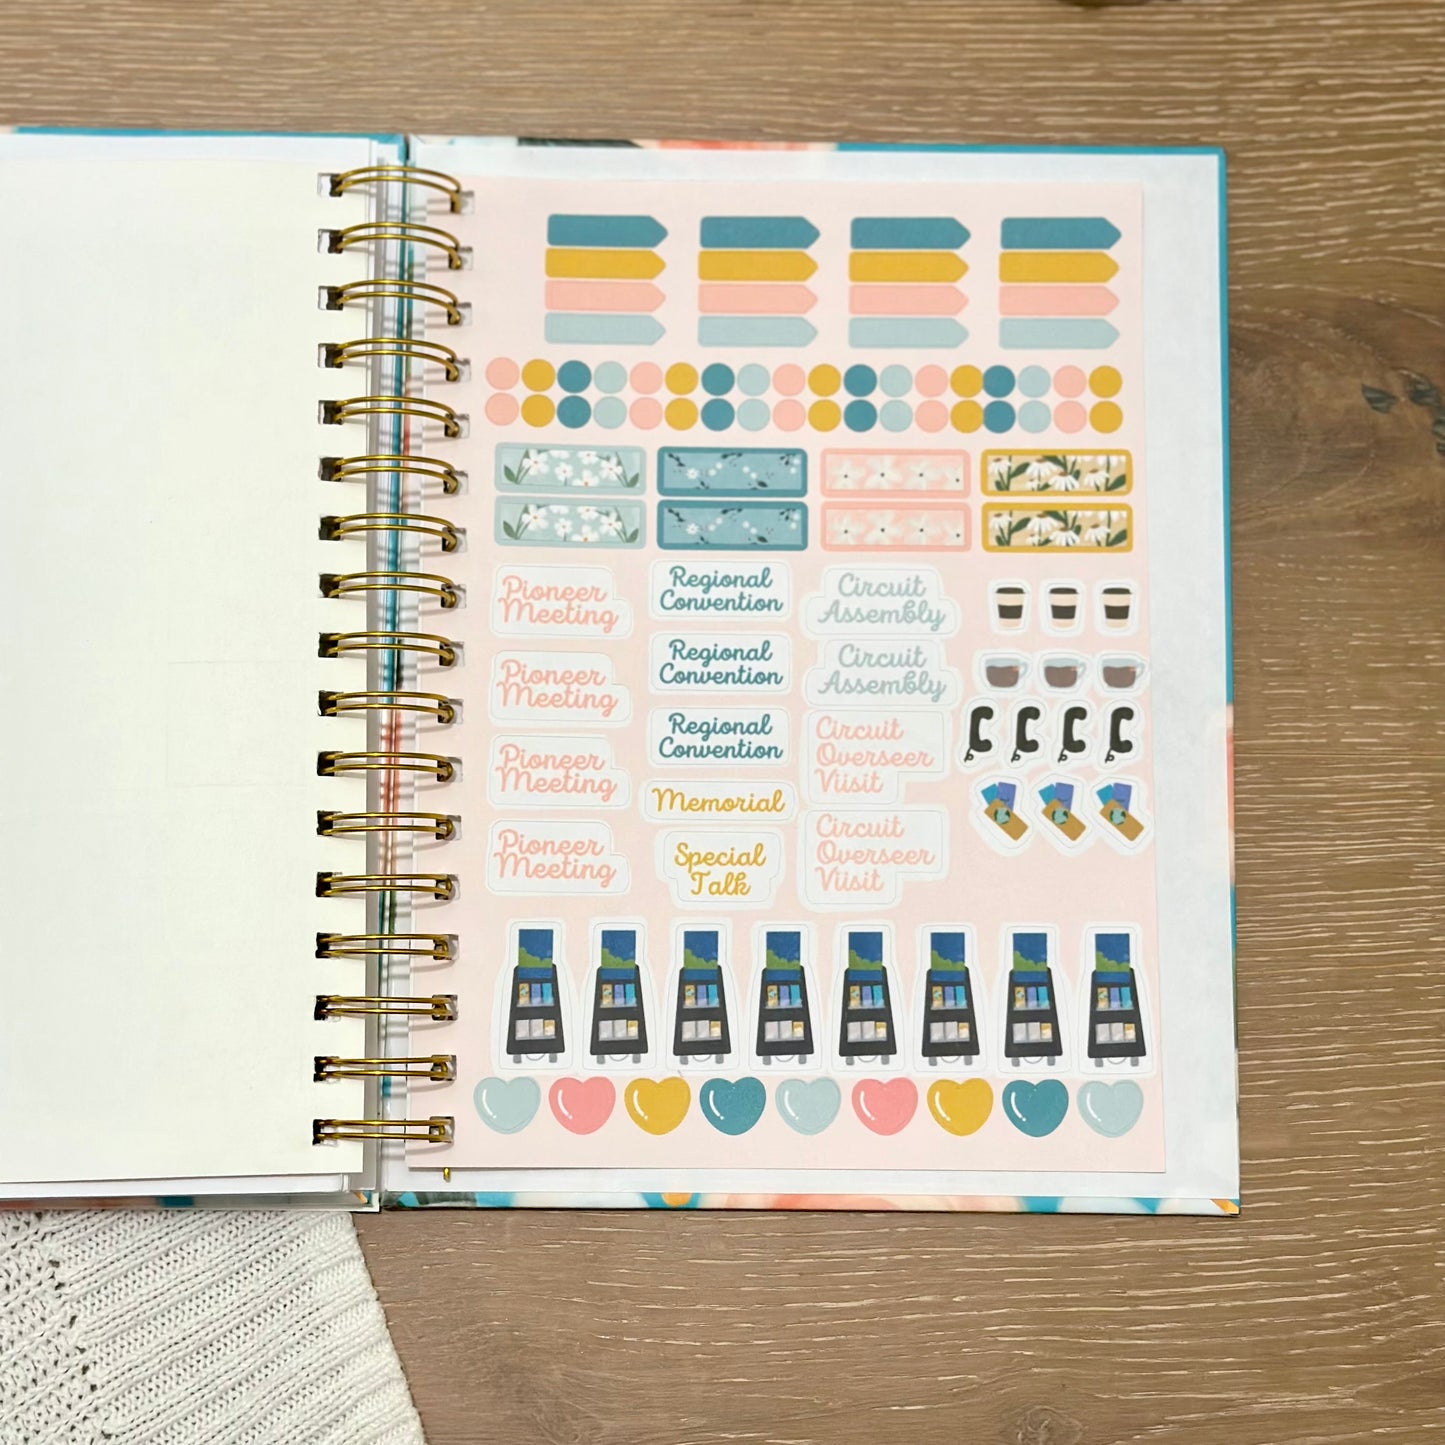 Pioneer
Meeting
Pioneer
Meeting
Pioneer
Meeting
Pioneer
Meeting
Regional
Convention
Regional
Convention
Regional
Convention
Memorial
Special
Talk
Circuit
Assembly
Circuit
Assembly
Circuit
Overseer
Visit
Circuit
Overseer
Visit